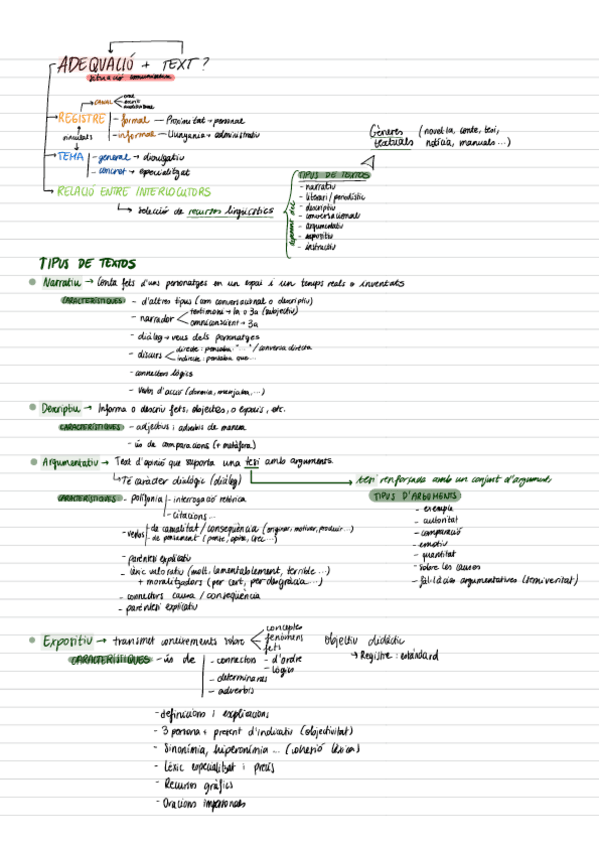 ADEQUACIÓ + TEXT?
situació comunicativa
CANAL
oral
escrit
REGISTRE - formal — Proximitat → personal
- informal — Llunyania → administratiu
vinculats
TEMA - general → divulgatiu
- concret → especialitzat
RELACIÓ ENTRE INTERLOCUTORS
→ selecció de recursos lingüístics
Gèneres textuals (novel·la, conte, tesi, notícia, manuals...)
depenent del
TIPUS DE TEXTOS
- narratiu
- literari / periodístic
- descriptiu
- conversacional
- argumentatiu
- expositiu
- instructiu
TIPUS DE TEXTOS
Narratiu → Conta fets d'uns personatges en un espai i un temps reals o inventats
CARACTERÍSTIQUES - d'altres tipus (com conversacional o descriptiu)
- narrador
testimoni → 1a o 3a (subjectiu)
omniscient → 3a
- diàleg → veus dels personatges
- discurs
directe: pensaba: "..." / conversa directa
indirecte: pensaba que...
- connectors lògics
- verbs d'acció (dormia, menjaba,...)
Descriptiu → Informa o descriu fets, objectes, o espais, etc.
CARACTERÍSTIQUES - adjectius i adverbis de manera
- ús de comparacions (+ metàfora)
Argumentatiu → Text d'opinió que suporta una tesi amb arguments.
Té caràcter dialògic (diàleg)
tesi reforçada amb un conjunt d'arguments
CARACTERÍSTIQUES - polifonia - interrogació retòrica
- citacions...
- verbs - de causalitat / conseqüència (originar, motivar, produir...)
- de pensament (pensa, opina, creu...)
- parèntesi explicatiu
- lèxic valoratiu (molt, lamentablement, terrible...)
+ moralitzadors (per cert, per desgràcia...)
- connectors causa / conseqüència
- parèntesi explicatiu
TIPUS D'ARGUMENTS
- exemple
- autoritat
- comparació
- emotiu
- quantitat
- sobre les causes
- fal·làcies argumentatives (semiveritat)
Expositiu → transmet coneixements sobre
conceptes
fenòmens
fets
Objectiu didàctic
→ Registre: estàndard
CARACTERÍSTIQUES - ús de - connectors - d'ordre
- lògics
- determinants
- adverbis
- definicions i explicacions
- 3 persona + present d'indicatiu (objectivitat)
- Sinonímia, hiperonímia ... (cohesió lèxica)
- Lèxic especialitzat i precís
- Recursos gràfics
- Oracions impersonals